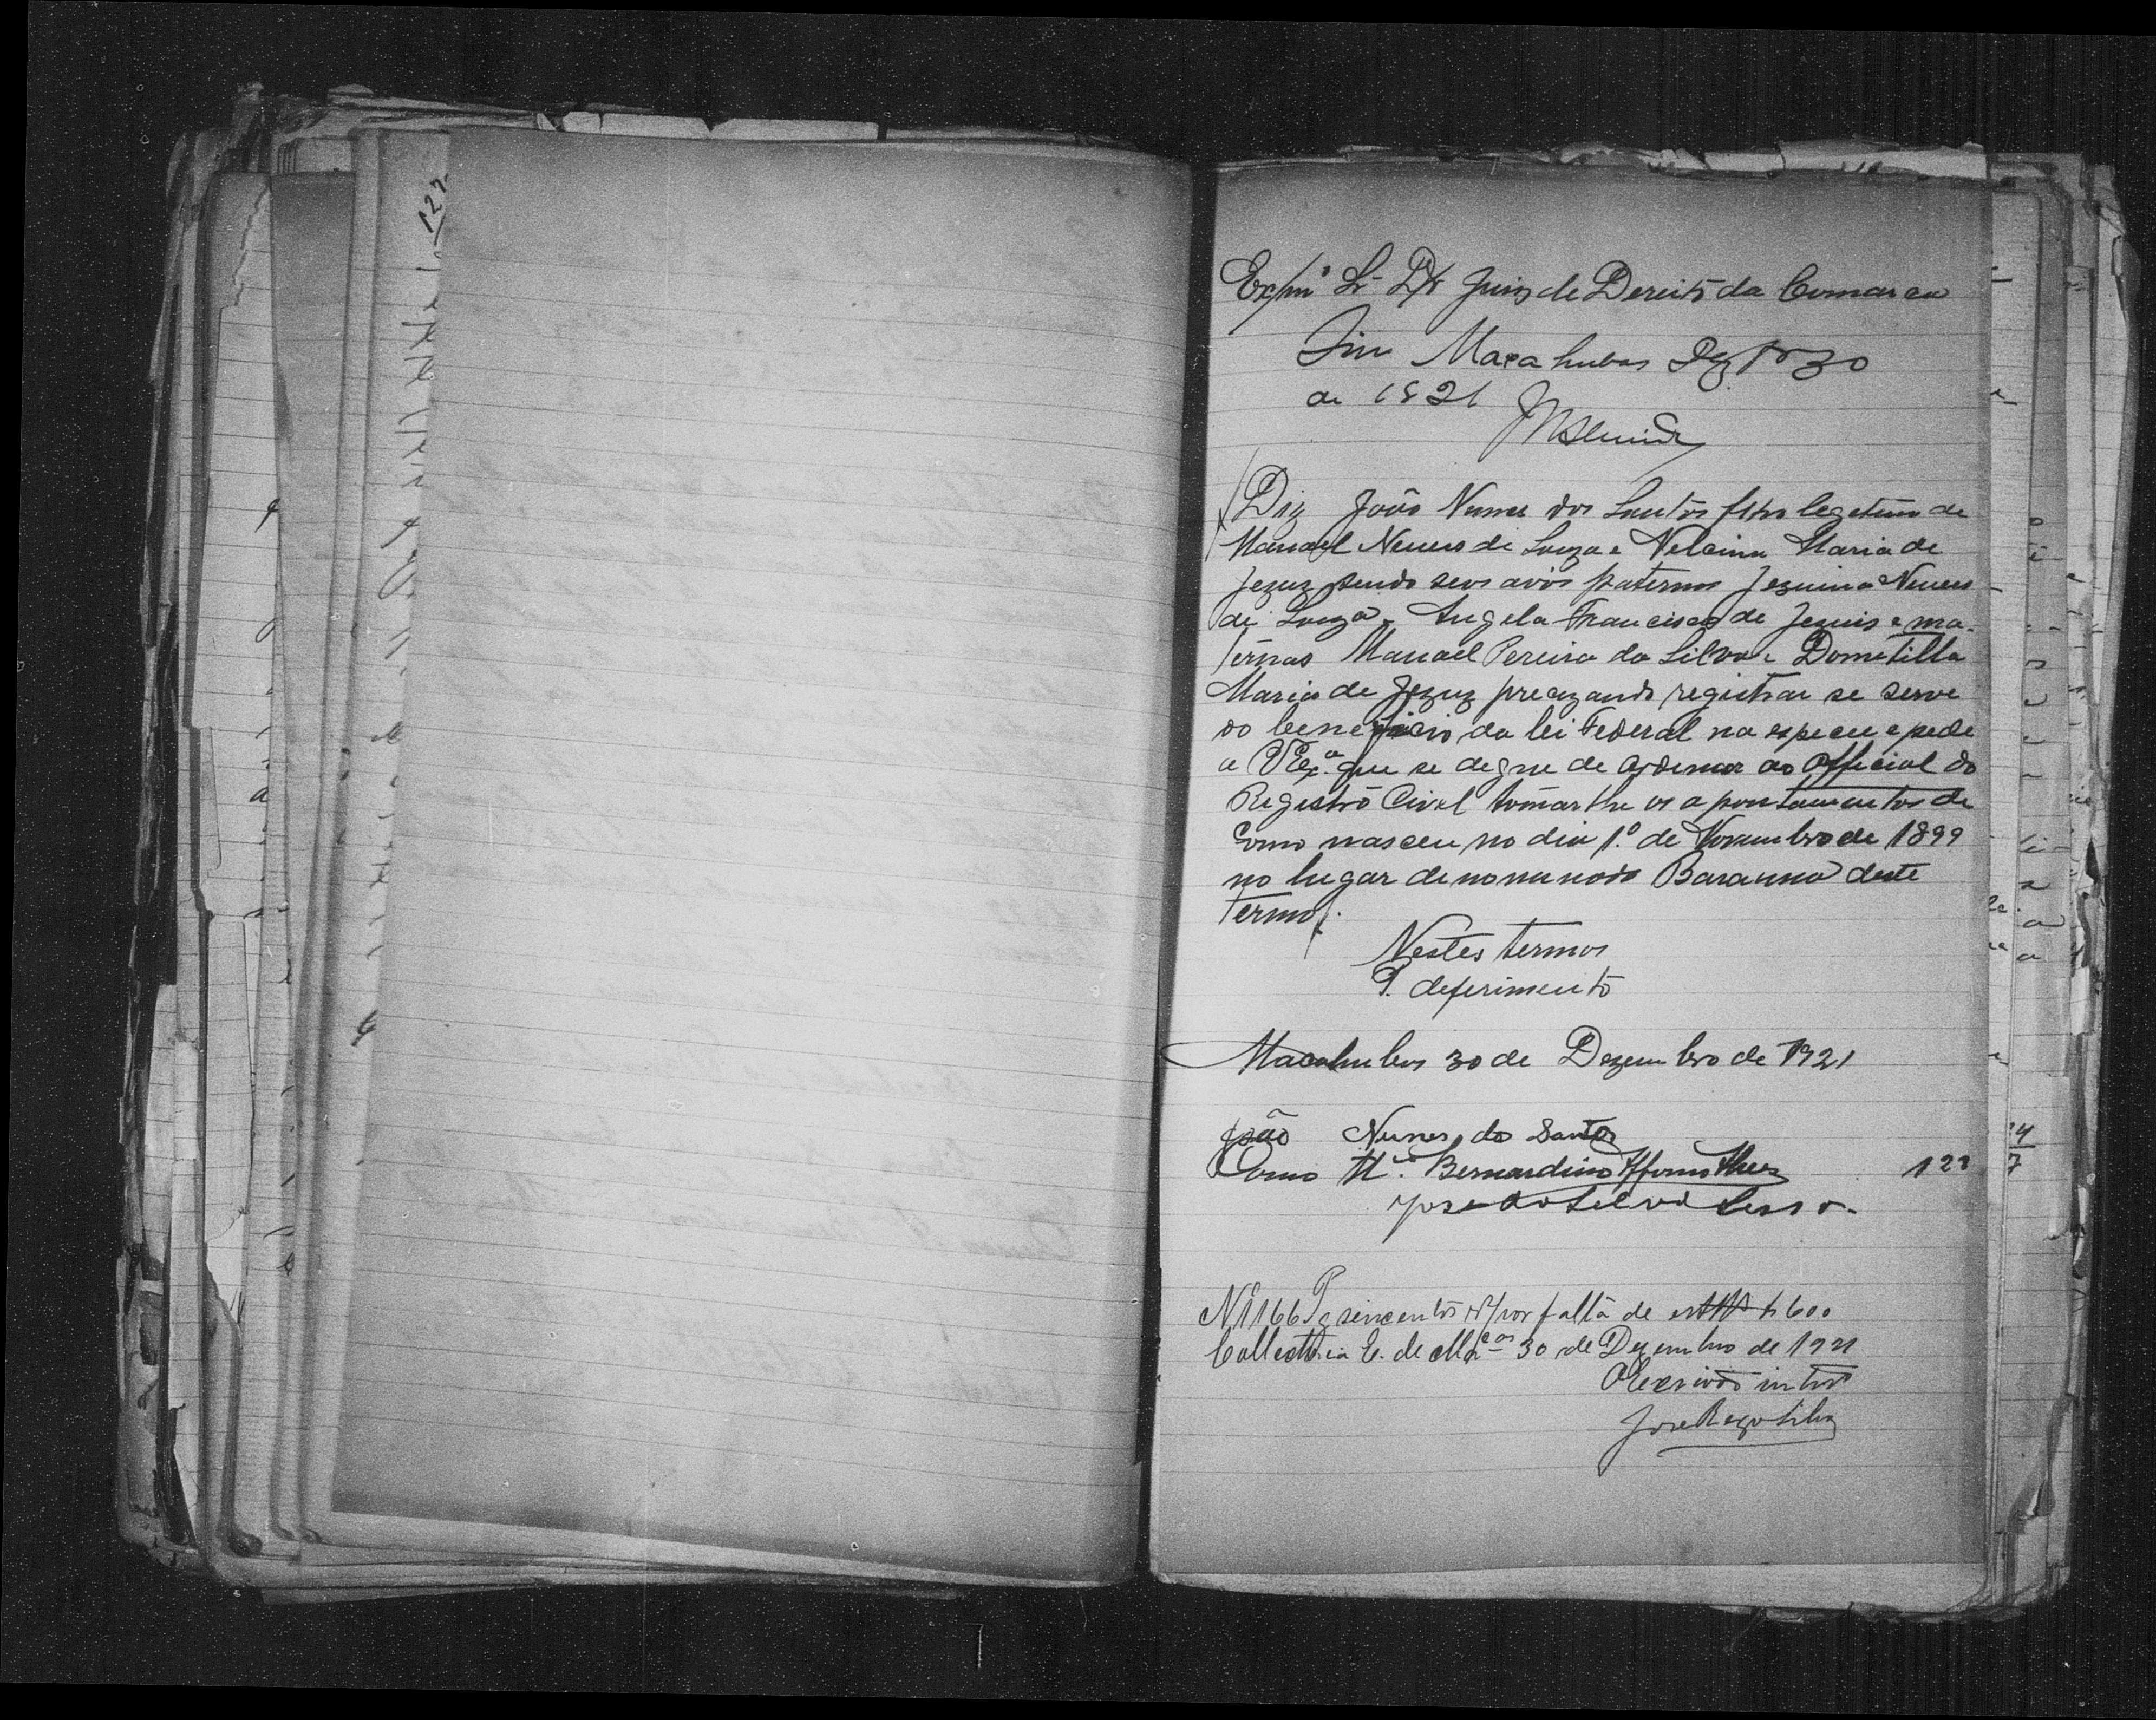 127
Ex/mº Sr Dr Juis de Dereito da Comarca
Sim Macahubas Dezbro 30
de 1921
Diz João Nunes dos Santos filho legetimo de
Manoel Neves de Souza e Maria de
Jezuz sendo seus avós paternos Jezuino Neves
de Souza e Angela Francisca de Jezuis e ma-
ternas Manoel Pereira da Silva e Dometilla
Maria de Jezuz precizando registrar se serve
do beneficio da lei Federal na especie e pede
a VExª. que se degne de ordenar ao Official do
Registro Civel tomar lhe os apontamentos de
como nasceu no dia 1.º de Novembro de 1899
no lugar denominado Barauna deste
Termo.
Nestes termos
P. deferimento
Macahubas 30 de Dezembro de 1921
João Nunes do Santos
Como Tª. Bernardino
José da Silva
Nº 166 Pg seiscentos rs por falta de 600
Collectoria E. de 30 de Dezembro de 1921
O Escrivão intrº
José Rego Silva